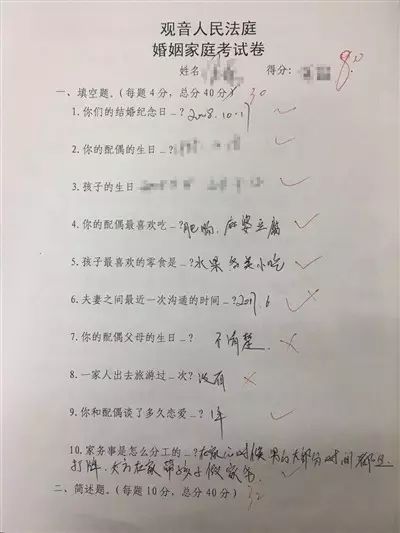 观音人民法庭
婚姻家庭考试卷
姓名 得分： 80
一、填空题。（每题4分，总分40分） 30
1. 你们的结婚纪念日_? 2008.10.17
2. 你的配偶的生日_?
3. 孩子的生日
4. 你的配偶最喜欢吃_? 肥肠、麻婆豆腐
5. 孩子最喜欢的零食是_? 水果 各类小吃
6. 夫妻之间最近一次沟通的时间_? 2017.6
7. 你的配偶父母的生日_? 不清楚
8. 一家人出去旅游过_次? 没有
9. 你和配偶谈了多久恋爱_? 1年
10. 家务事是怎么分工的_? 在家的时候 男的大部分时间都
打牌, 女方在家带孩子做家务
二、简述题。（每题10分，总分40分） 32